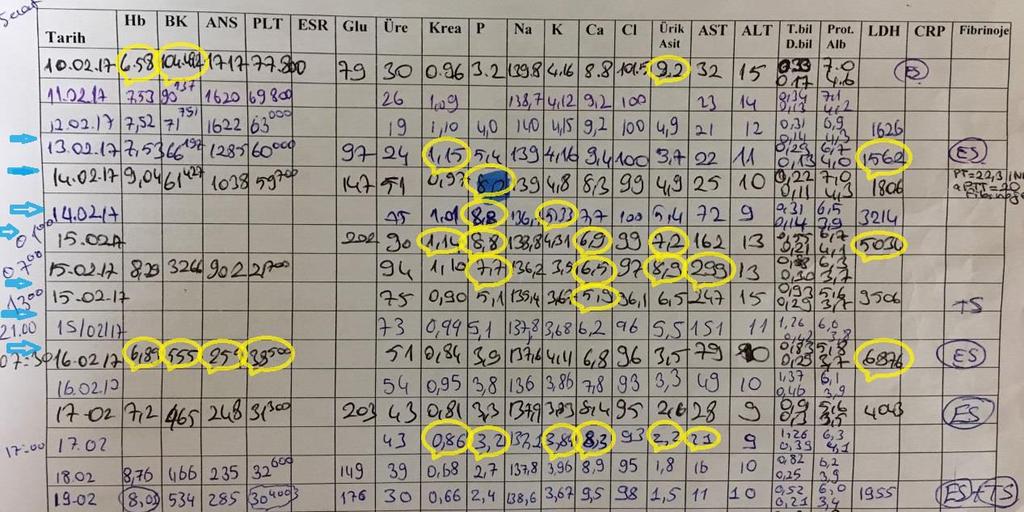 Saat
Tarih Hb BK ANS PLT ESR Glu Üre Krea P Na K Ca Cl Ürik Asit AST ALT T.bil D.bil Prot. Alb LDH CRP Fibrinojen
10.02.17 6.58 104.492 1717 77.800 79 30 0.96 3.2 139.8 4.16 8.8 101.5 9.2 32 15 0.33 0.17 7.0 4.6 ES
11.02.17 7,53 90137 1620 69800 26 1,09 138,7 4,12 9,2 100 23 14 0,34 0,13 7,1 4,2
12.02.17 7,52 71751 1622 63000 19 1,10 4,0 140 4,15 9,2 100 4,9 21 12 0,31 0,14 6,9 4,3 1626
13.02.17 7,53 66192 1285 60000 97 24 1,15 5,4 139 4,16 9,4 100 3,7 22 11 0,29 0,13 6,7 4,0 1562 ES
14.02.17 9,04 61427 1038 59700 147 51 0,97 8.0 139 4,8 8,3 99 4,9 25 10 0,22 0,11 7,0 4,3 1806 PT=22,3 aPTT=20
14.02.17 1.01 8.8 5.33 7,7 100 5,4 72 9 0,31 0,14 6,5 3,9 3214
0100 15.02.17 202 90 1,14 8,8 138,8 4,31 6,9 99 7,2 162 13 6,7 4,1 5030
0700 15.02.17 8,29 3266 902 21700 94 1,10 7,7 136,2 3,5 6,5 97 8,9 299 13 0.30 6.3 3,7
1300 15.02.17 75 0,90 5,1 135,4 3,67 5,9 96,1 6,5 247 15 0,93 0,29 9506 TS
21.00 15/02/17 73 0,99 5,1 137,8 3,68 6,2 96 5,5 151 11 1,26 6,0 3.8
07:30 16.02.17 6,83 555 259 38500 51 0,84 3,9 137,6 4,11 6,8 96 3,5 79 10 5.8 3,7 6876 ES
16.02.17 54 0,95 3,8 136 3,86 7,8 93 3,3 49 10 1,37 0,46 6,1 3,9
17-02 7,2 465 248 31300 203 43 0,81 3,3 137,9 8,4 95 2,6 28 9 0.9 4043 ES
17:00 17.02 43 0,86 3,2 137,1 3,84 8,3 93 2,3 21 9 1,26 0,39 6,3 4,1
18.02 8,76 466 235 32600 149 39 0,68 2,7 137,8 3,96 8,9 95 1,8 16 10 0,82 0,25 6,2 3,9
19-02 8,01 534 285 30400 176 30 0,66 2,4 138,6 3,67 9,5 98 1,5 11 10 0,52 0,21 6,0 3,4 1955 ES+TS